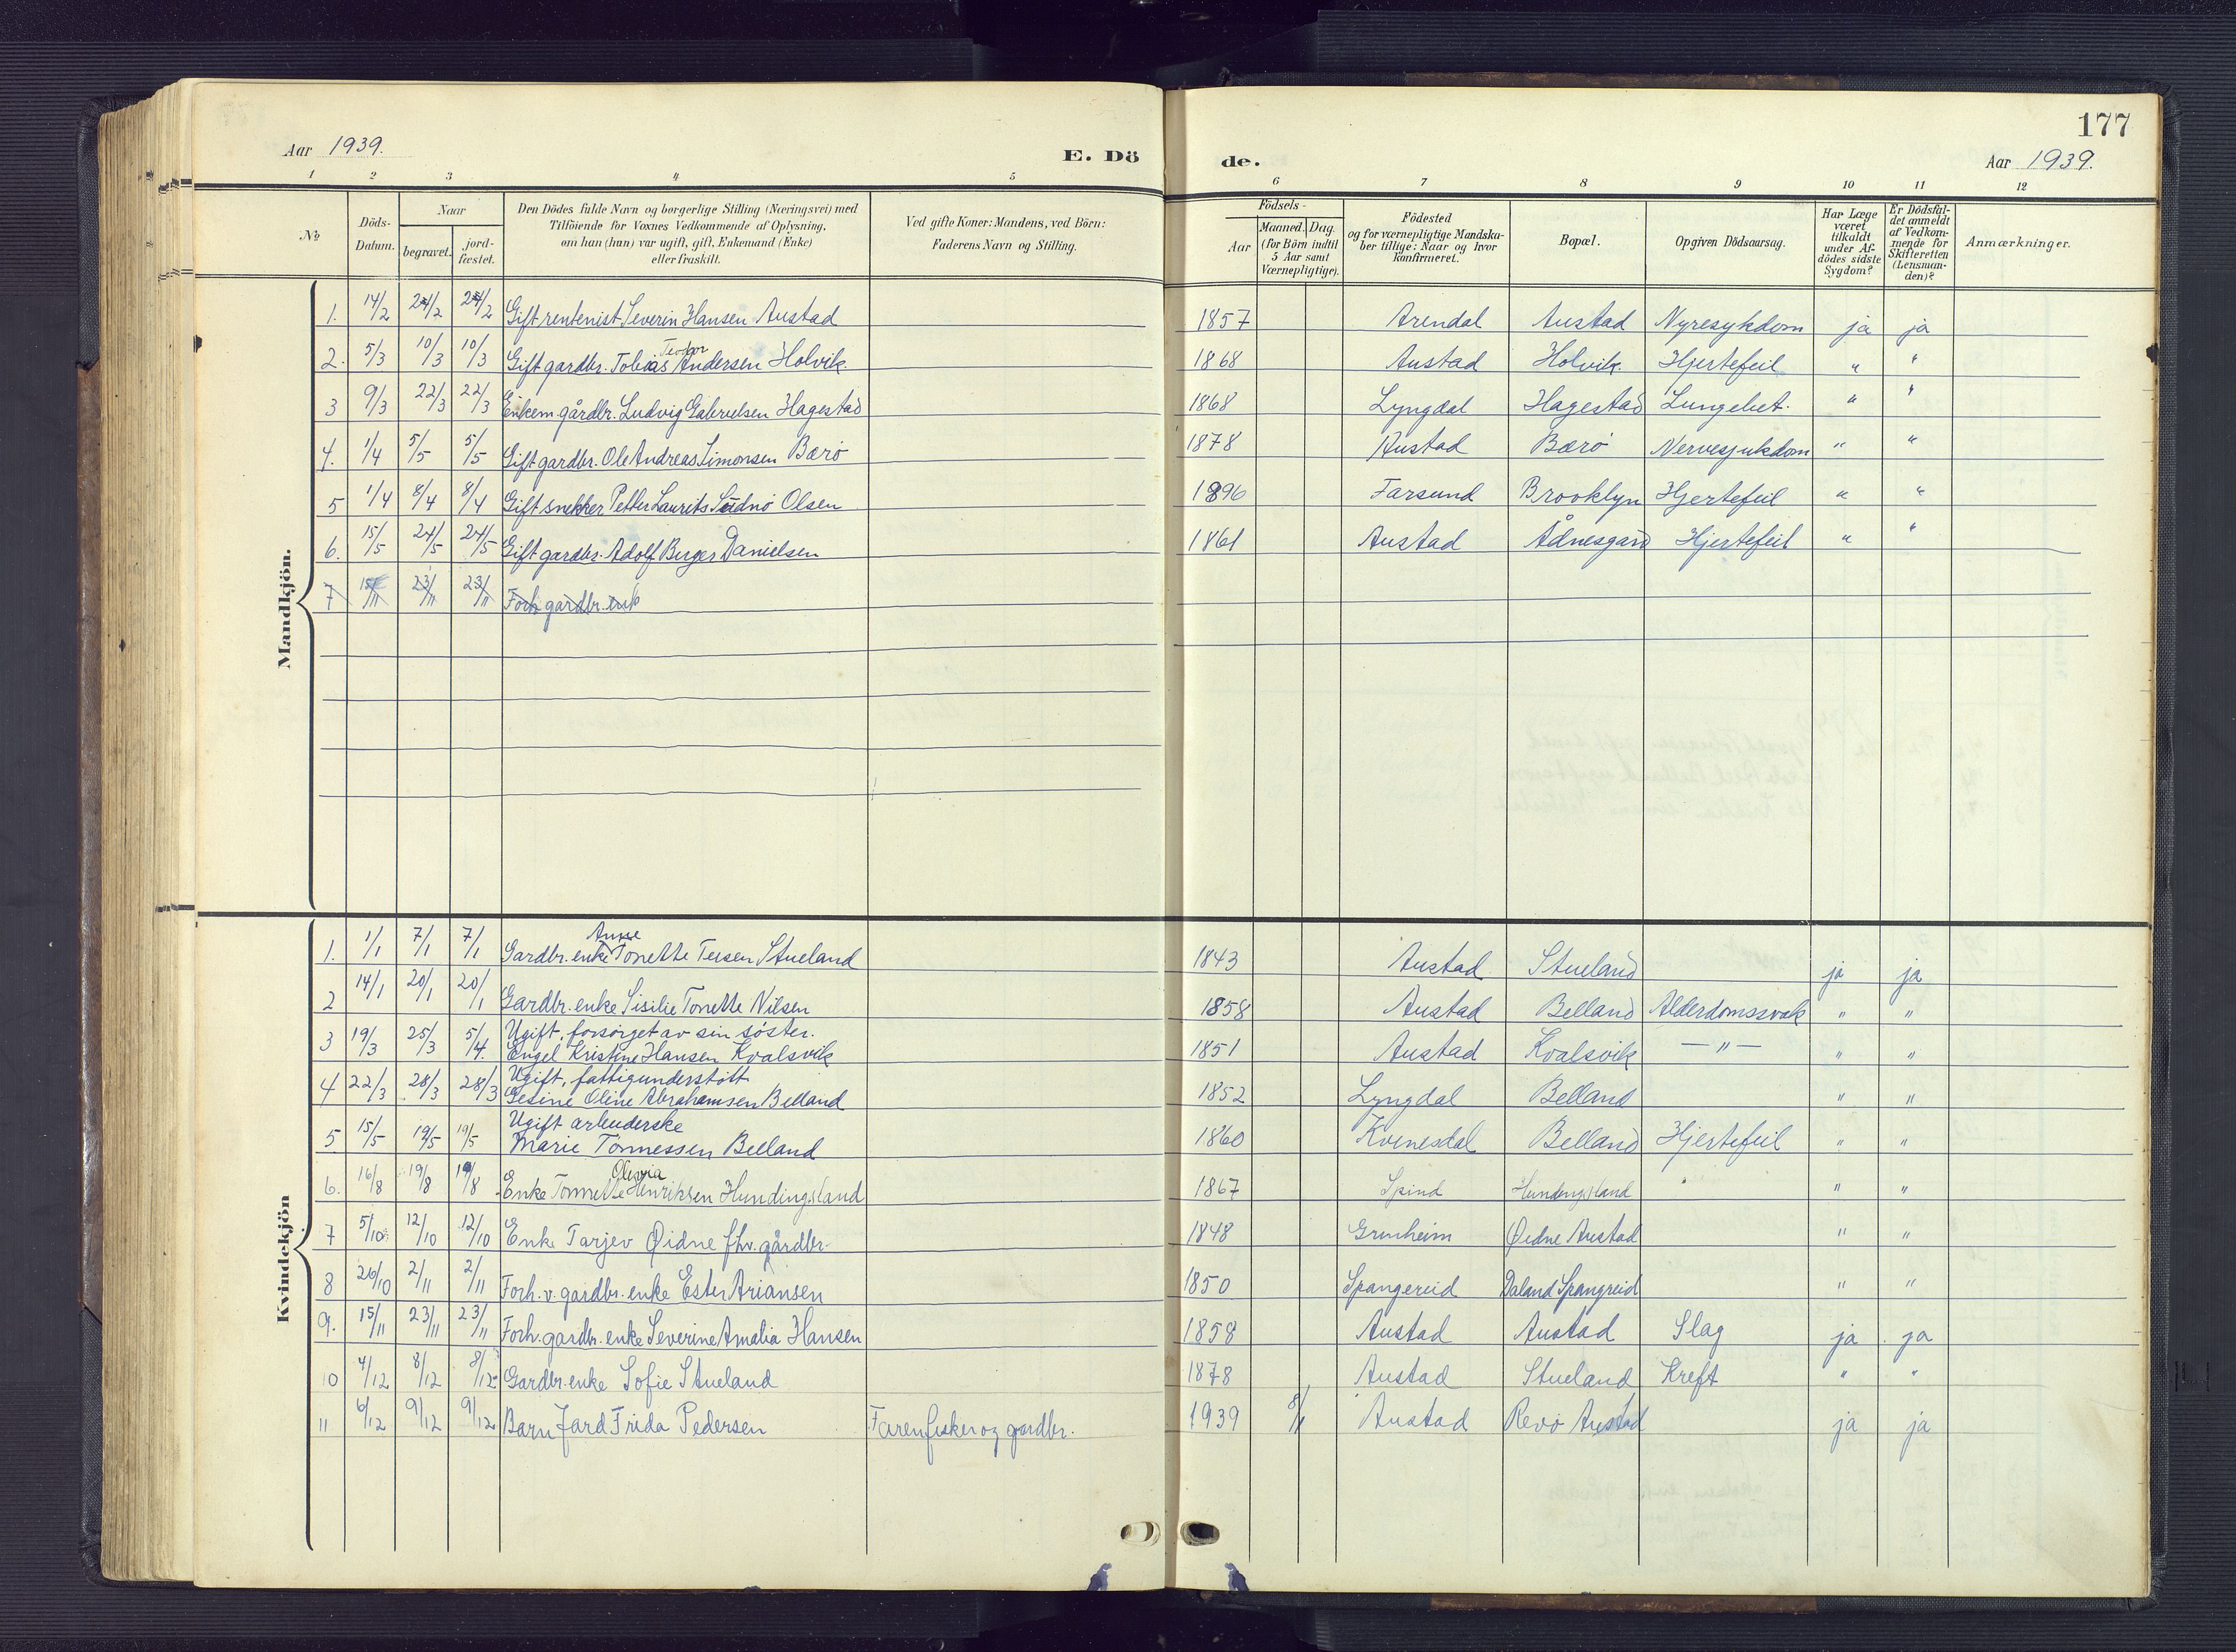 Aar 1939.
E. Dö
de.
177
Aar 1939.
1 2 3 4 5
6 7 8 9 10 11 12
No
Döds-Datum.
Naar
begravet.
jord-fæstet.
Den Dödes fulde Navn og borgerlige Stilling (Næringsvei) med
Tilföiende for Voxnes Vedkommende af Oplysning,
om han (hun) var ugift, gift, Enkemand (Enke)
eller fraskilt.
Ved gifte Koner: Mandens, ved Börn:
Faderens Navn og Stilling.
Födsels-
Aar
Maaned. Dag.
(for Börn indtil
5 Aar samt
Værnepligtige).
Födested
og for værnepligtige Mandska-
ber tillige: Naar og hvor
konfirmeret.
Bopæl.
Opgiven Dödsaarsag.
Har Læge
været
tilkaldt
under Af-
dödes sidste
Sygdom?
Er Dödsfal-
det anmeldt
af Vedkom-
mende for
Skifteretten
(Lensman-
den)?
Anmærkninger.
Mandkjön.
1. 14/2 24/2 24/2 Gift rentenist Severin Hansen Austad 1857 Arendal Austad Nyresykdom ja ja
2. 5/3 10/3 10/3 Gift gardbr. Tobias Teodor Andersen Holvik. 1868 Austad Holvik. Hjertefeil " "
3 9/3 22/3 22/3 Enkem. gårdbr. Ludvig Gabrielsen Hagestad 1868 Lyngdal Hagestad Lungebet. " "
4. 1/4 5/5 5/5 Gift gardbr. Ole Andreas Simonsen Bærö 1878 Austad Bærö Nervesjukdom " "
5 1/4 8/4 8/4 Gift snekker Petter Laurits Olsen 1896 Farsund Brooklyn Hjertefeil " "
6. 15/5 24/5 24/5 Gift gardbr. Adolf Berger Danielsen 1861 Austad Ådnesgard Hjertefeil " "
7 15/11 23/11 23/11 Forh. gardbr. enk
Kvindekjön
1. 1/1 7/1 7/1 Gardbr. enke Anne Tonette Tersen Stueland 1843 Austad Stueland ja ja
2 14/1 20/1 20/1 Gardbr. enke Sisilie Tonette Nilsen 1858 Austad Belland Alderdomssvak " "
3 19/3 25/3 5/4. Ugift, forsörget av sin söster.
Engel Kristine Hansen Kvalsvik 1851 Austad Kvalsvik — " — " "
4 22/3 28/3 28/3 Ugift, fattigunderstött
Gesine Oline Abrahamsen Belland 1852 Lyngdal Belland " "
5 15/5 19/5 19/5 Ugift arbeiderske
Marie Tönnessen Belland 1860 Kvinesdal Belland Hjertefeil " "
6. 16/8 19/8 19/8 Enke Tonnette Henriksen Hundingsland 1867 Spind Hundingsland " "
7 5/10 12/10 12/10 Enke Tarjev Øidne fhv. gårdbr. 1848 Grinheim Øidne Austad " "
8 26/10 2/11 2/11 Forh. v. gardbr. enke Ester Ariansen 1850 Spangereid Daland Spangreid " "
9. 15/11 23/11 23/11 Forh. gardbr. enke Severine Amalia Hansen 1858 Austad Austad Slag ja ja
10 4/12 8/12 8/12 Gardbr. enke Sofie Stueland 1878 Austad Stueland Kreft " "
11 6/12 9/12 9/12 Barn Jard Frida Pedersen Faren fisker og gardbr. 1939 8/1 Austad Revö Austad ja ja